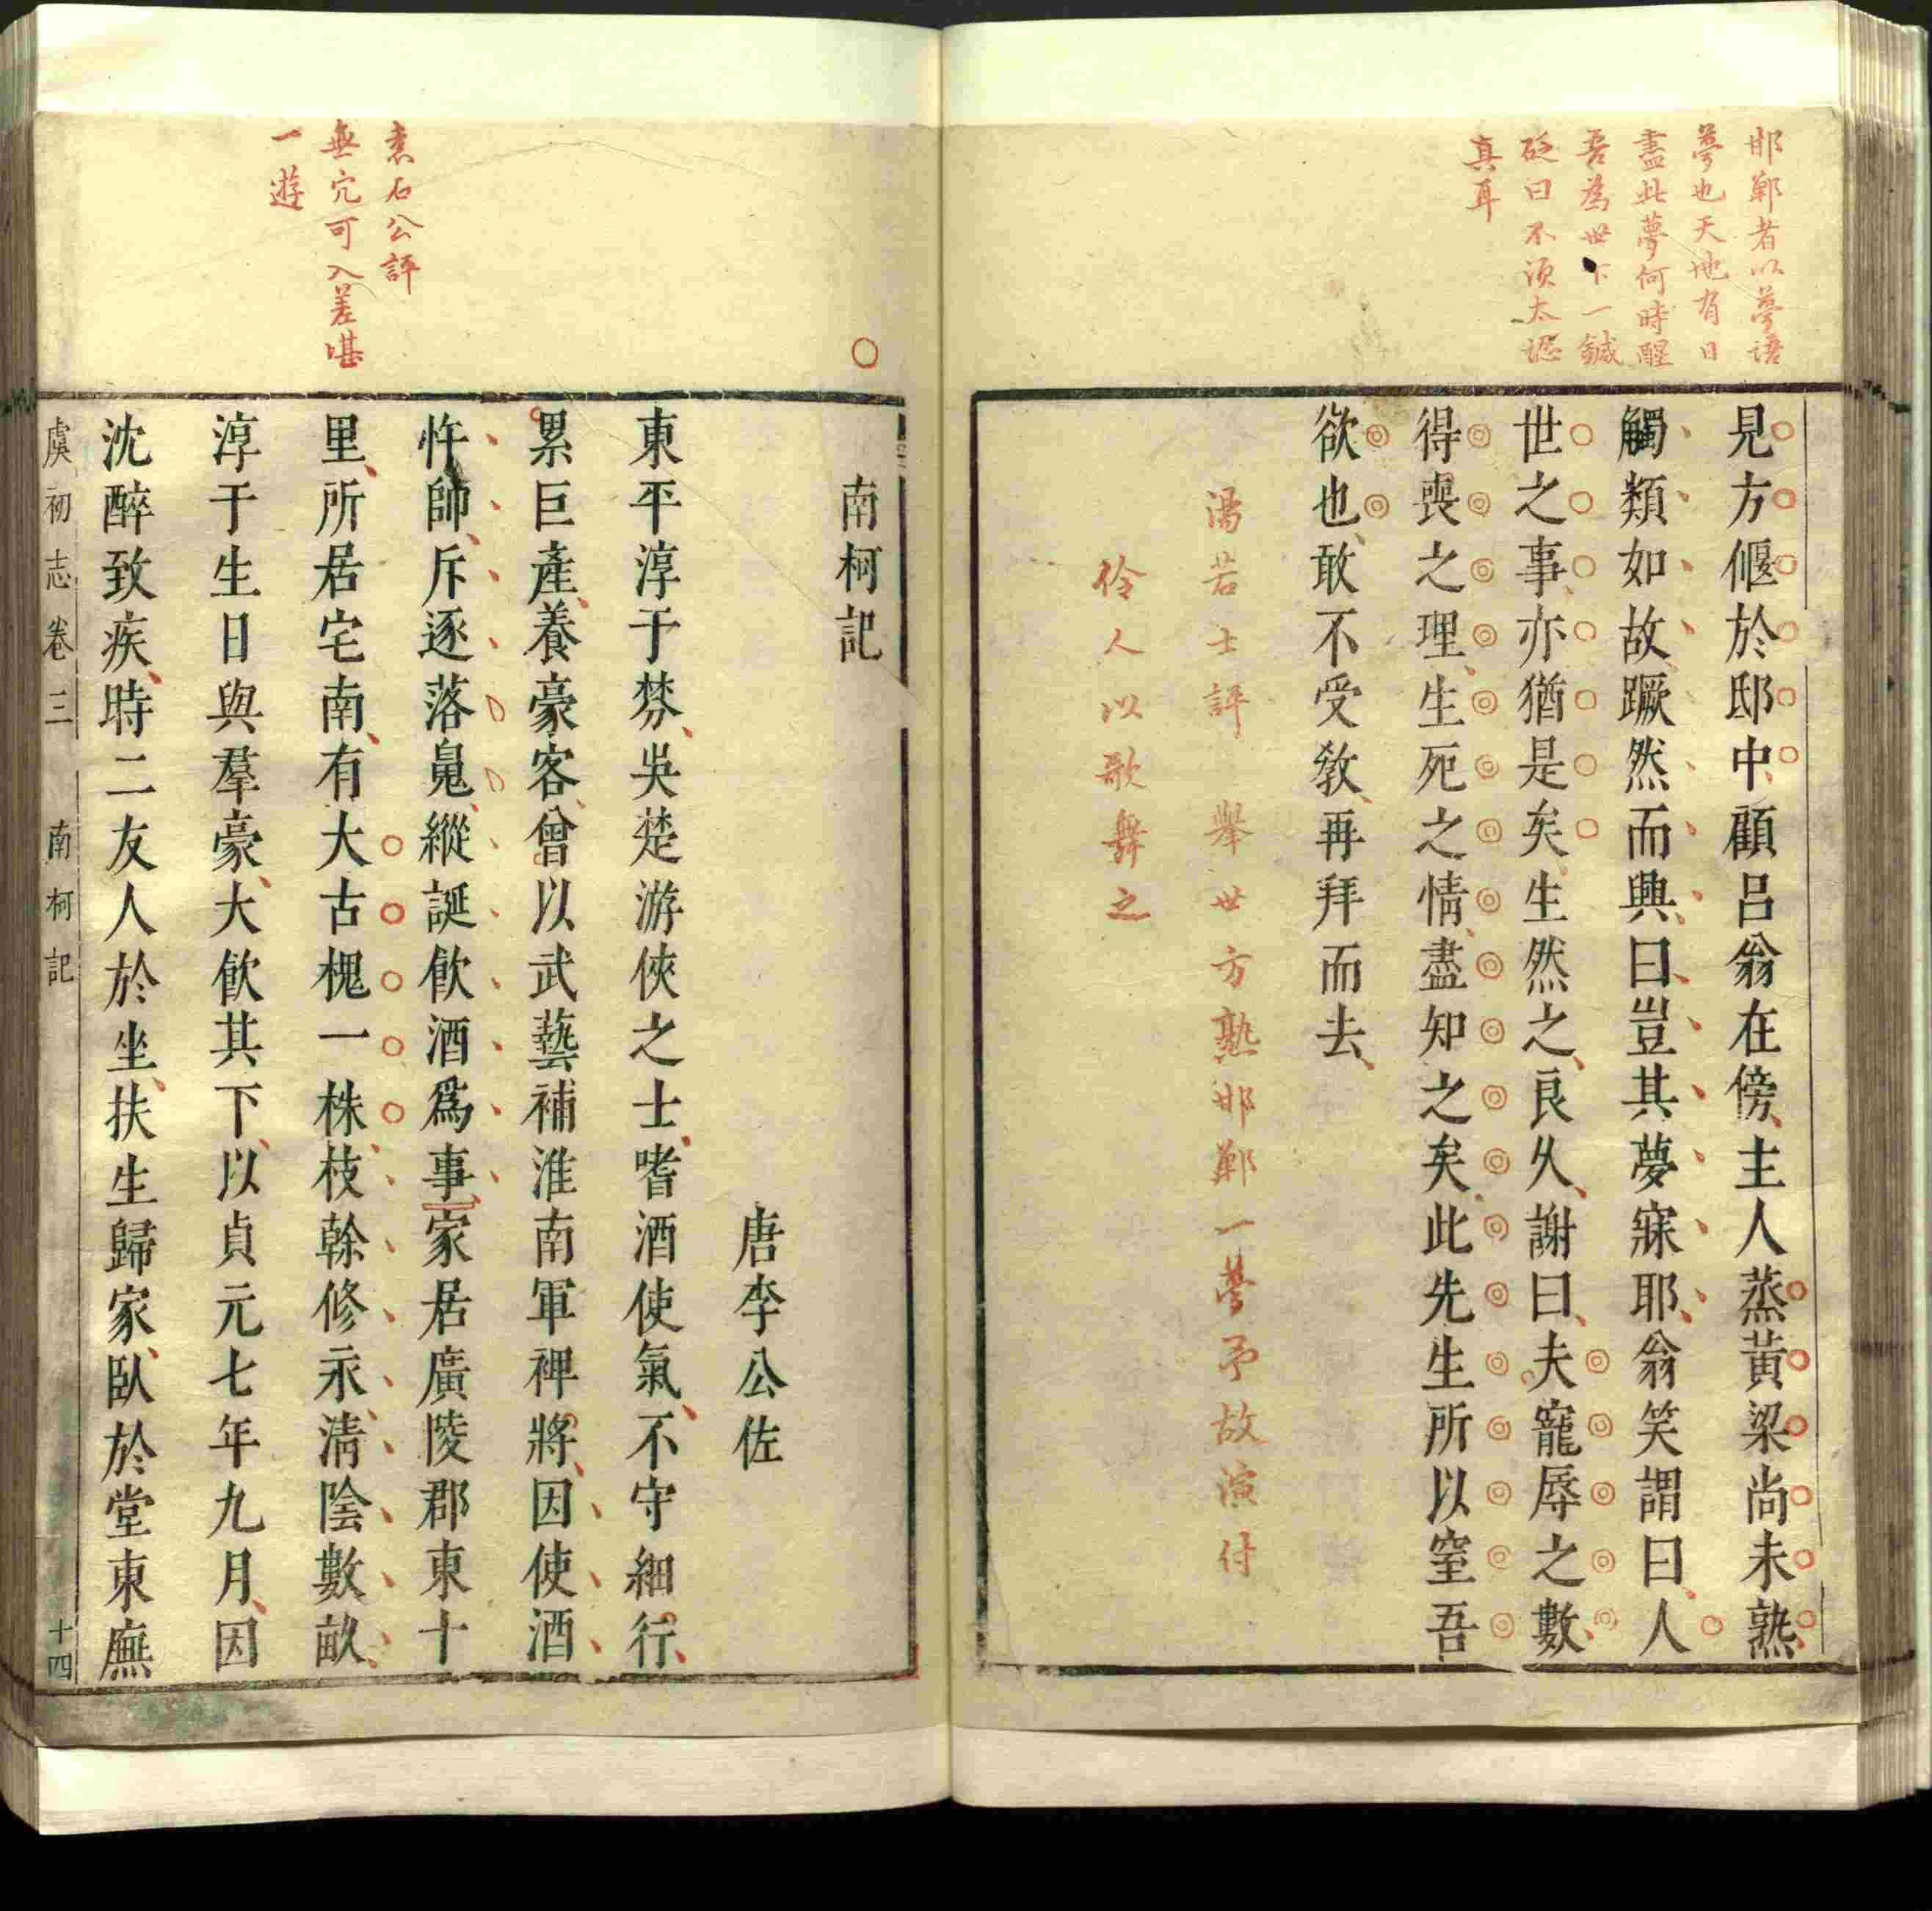 邯鄲者以夢語
夢也天地有日
盡此夢何時醒
吾為世下一鍼
砭曰不須太認
真耳
見方偃於邸中顧呂翁在傍主人蒸黃梁尚未熟
觸類如故蹶然而興曰豈其夢寐耶翁笑謂曰人
世之事亦猶是矣生然之良久謝曰夫寵辱之數
得喪之理生死之情盡知之矣此先生所以窒吾
欲也敢不受敎再拜而去
湯若士評 舉世方熟邯鄲一夢予故演付
伶人以歌舞之
袁石公評
無穴可入差堪
一遊
南柯記
唐李公佐
東平淳于棼吳楚游俠之士嗜酒使氣不守細行
累巨產養豪客曾以武藝補淮南軍裨將因使酒
忤帥斥逐落魄縱誕飮酒爲事家居廣陵郡東十
里所居宅南有大古槐一株枝幹修永淸陰數畝
淳于生日與羣豪大飮其下以貞元七年九月因
沈醉致疾時二友人於坐扶生歸家臥於堂東廡
虞初志卷三 南柯記 十四